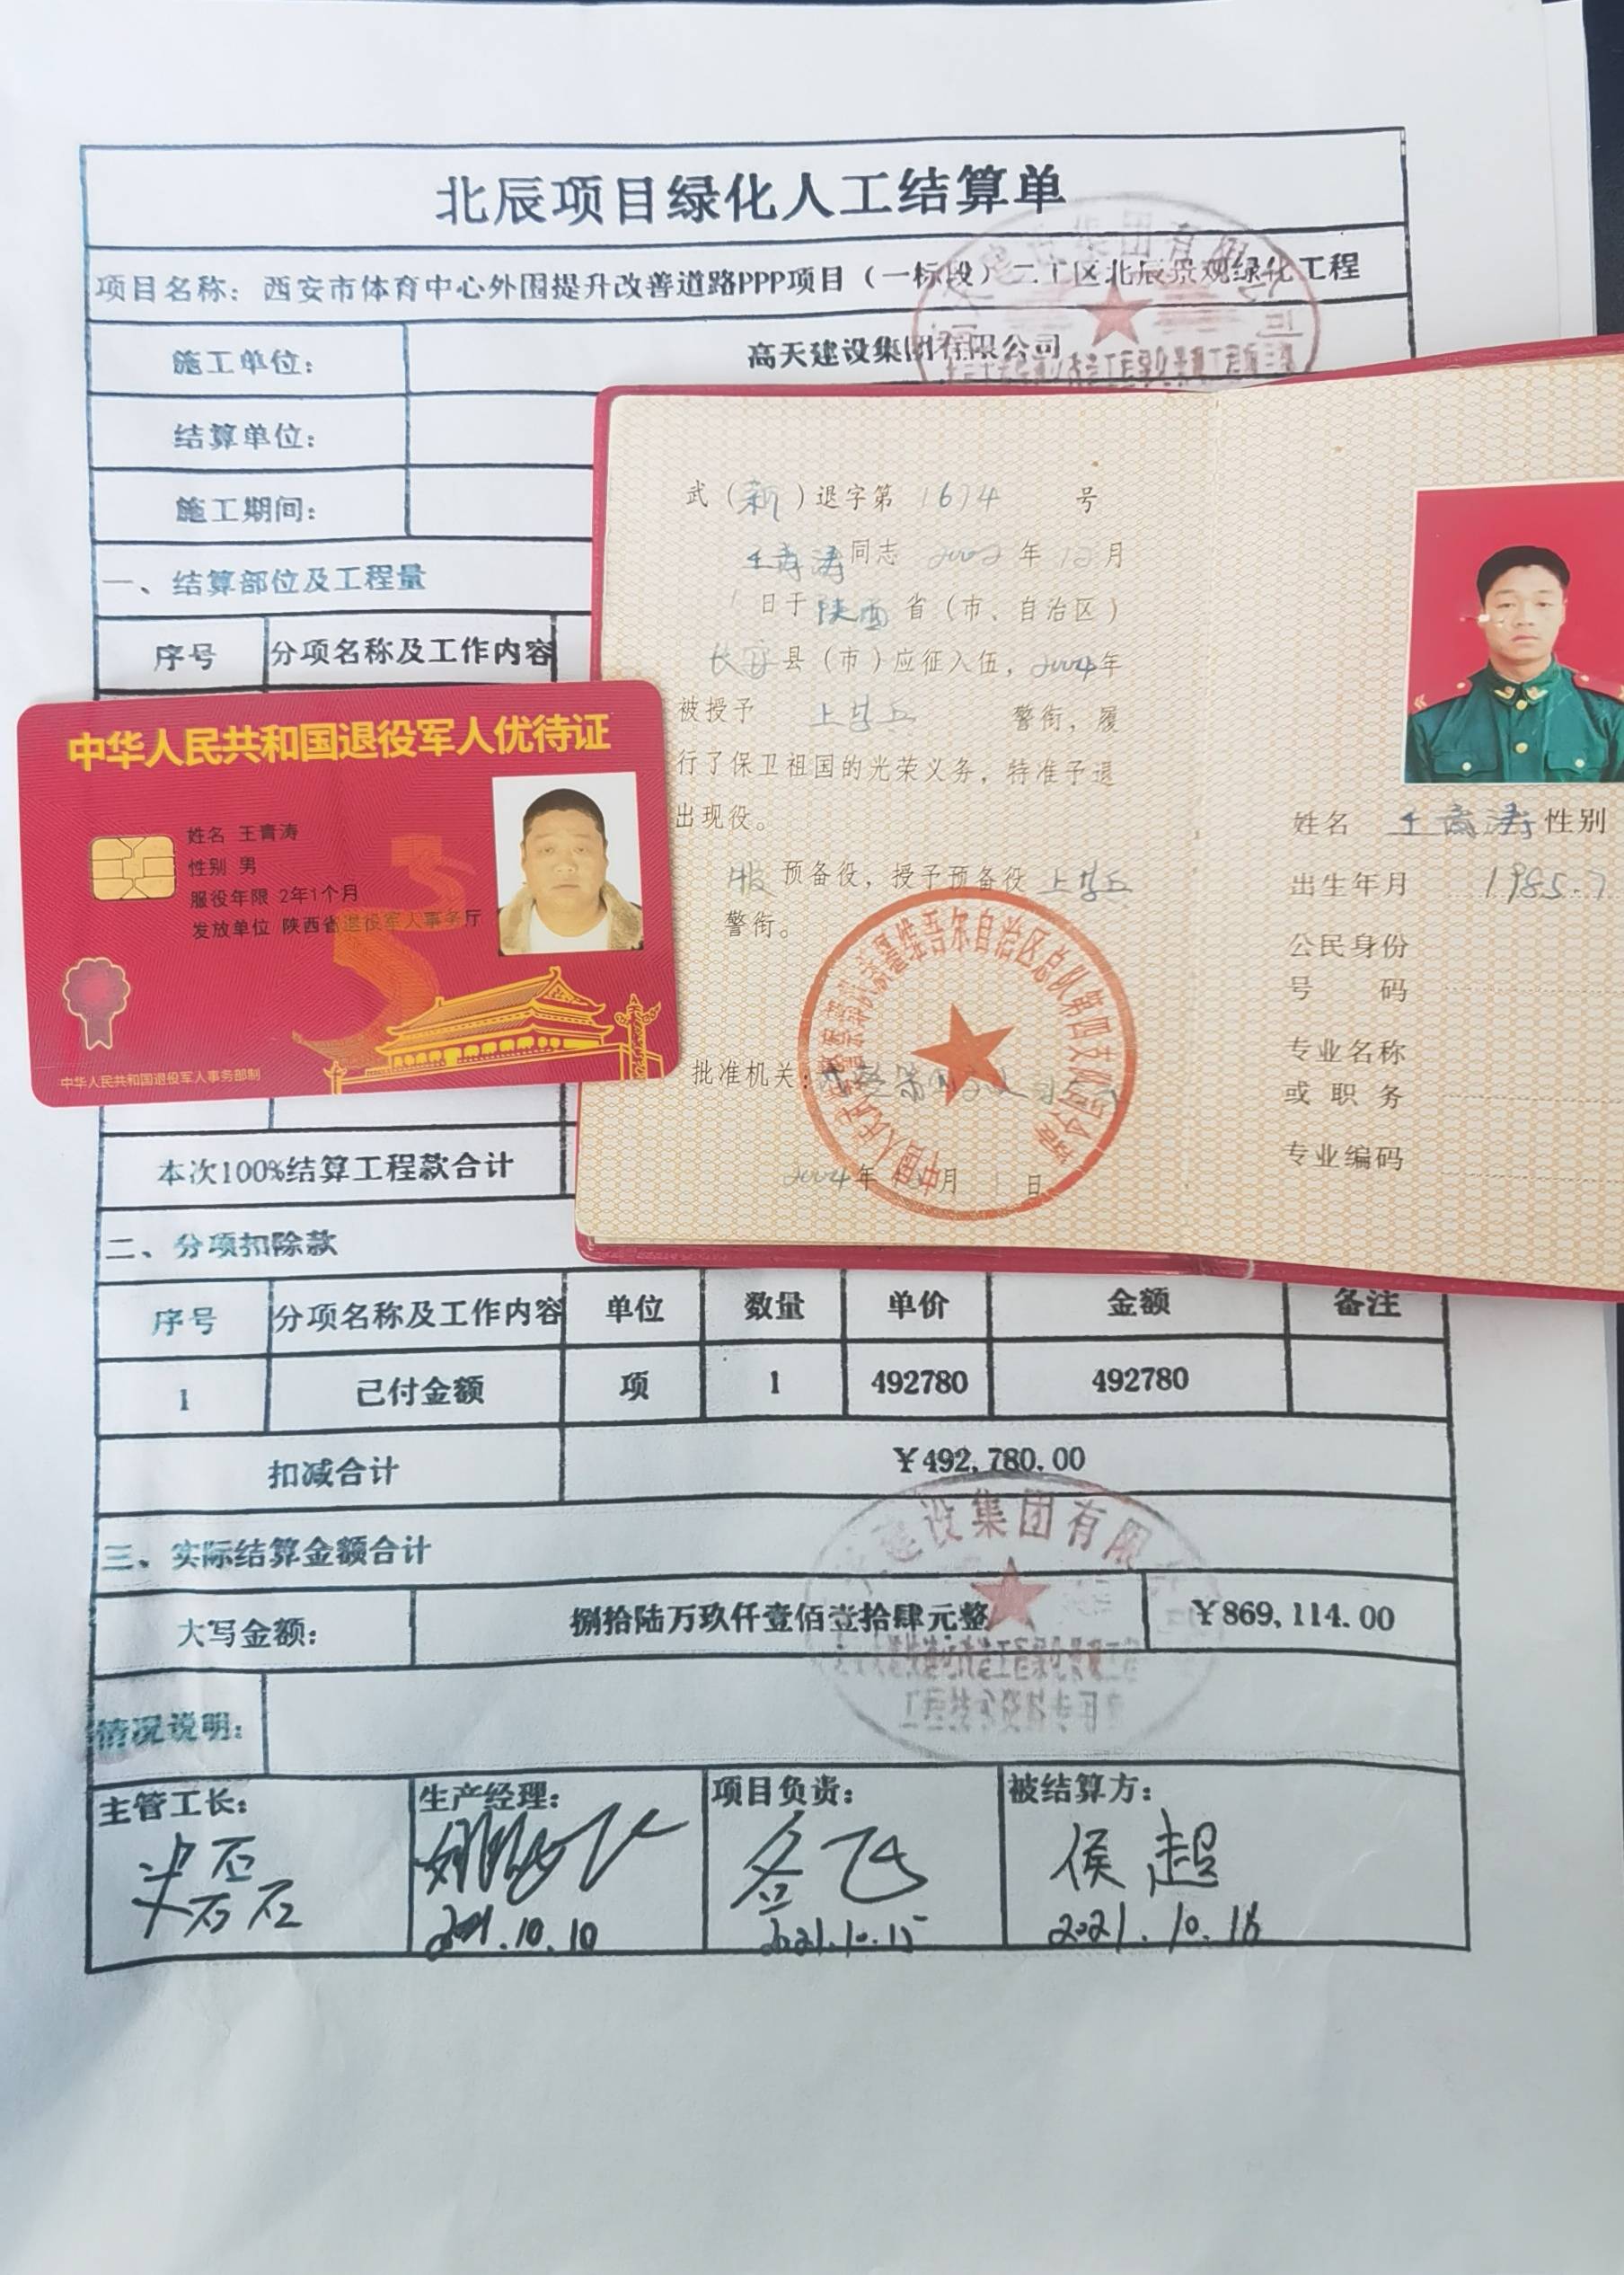 北辰项目绿化人工结算单
项目名称：西安市体育中心外围提升改善道路PPP项目（一标段）二工区北辰景观绿化工程
施工单位：
高天建设集团有限公司
结算单位：
施工期间：
一、结算部位及工程量
序号 分项名称及工作内容
中华人民共和国退役军人优待证
姓名 王青涛
性别 男
服役年限 2年1个月
发放单位 陕西省退役军人事务厅
中华人民共和国退役军人事务部制
武（新）退字第 1674 号
王青涛同志 2002年12月
1日于陕西省（市、自治区）
长安县（市）应征入伍，2004年
被授予 上等兵 警衔，履
行了保卫祖国的光荣义务，特准予退
出现役。
服预备役，授予预备役上等兵
警衔。
批准机关：
2004年 月 1日
姓名 王青涛 性别
出生年月 1985.7
公民身份
号 码
专业名称
或 职 务
专业编码
本次100%结算工程款合计
二、分项扣除款
序号 分项名称及工作内容 单位 数量 单价 金额 备注
1 已付金额 项 1 492780 492780
扣减合计 ￥492,780.00
三、实际结算金额合计
建设集团有限
大写金额： 捌拾陆万玖仟壹佰壹拾肆元整 ￥869,114.00
情况说明：
主管工长： 生产经理： 项目负责： 被结算方：
侯超
2021.10.10 2021.10.15 2021.10.18